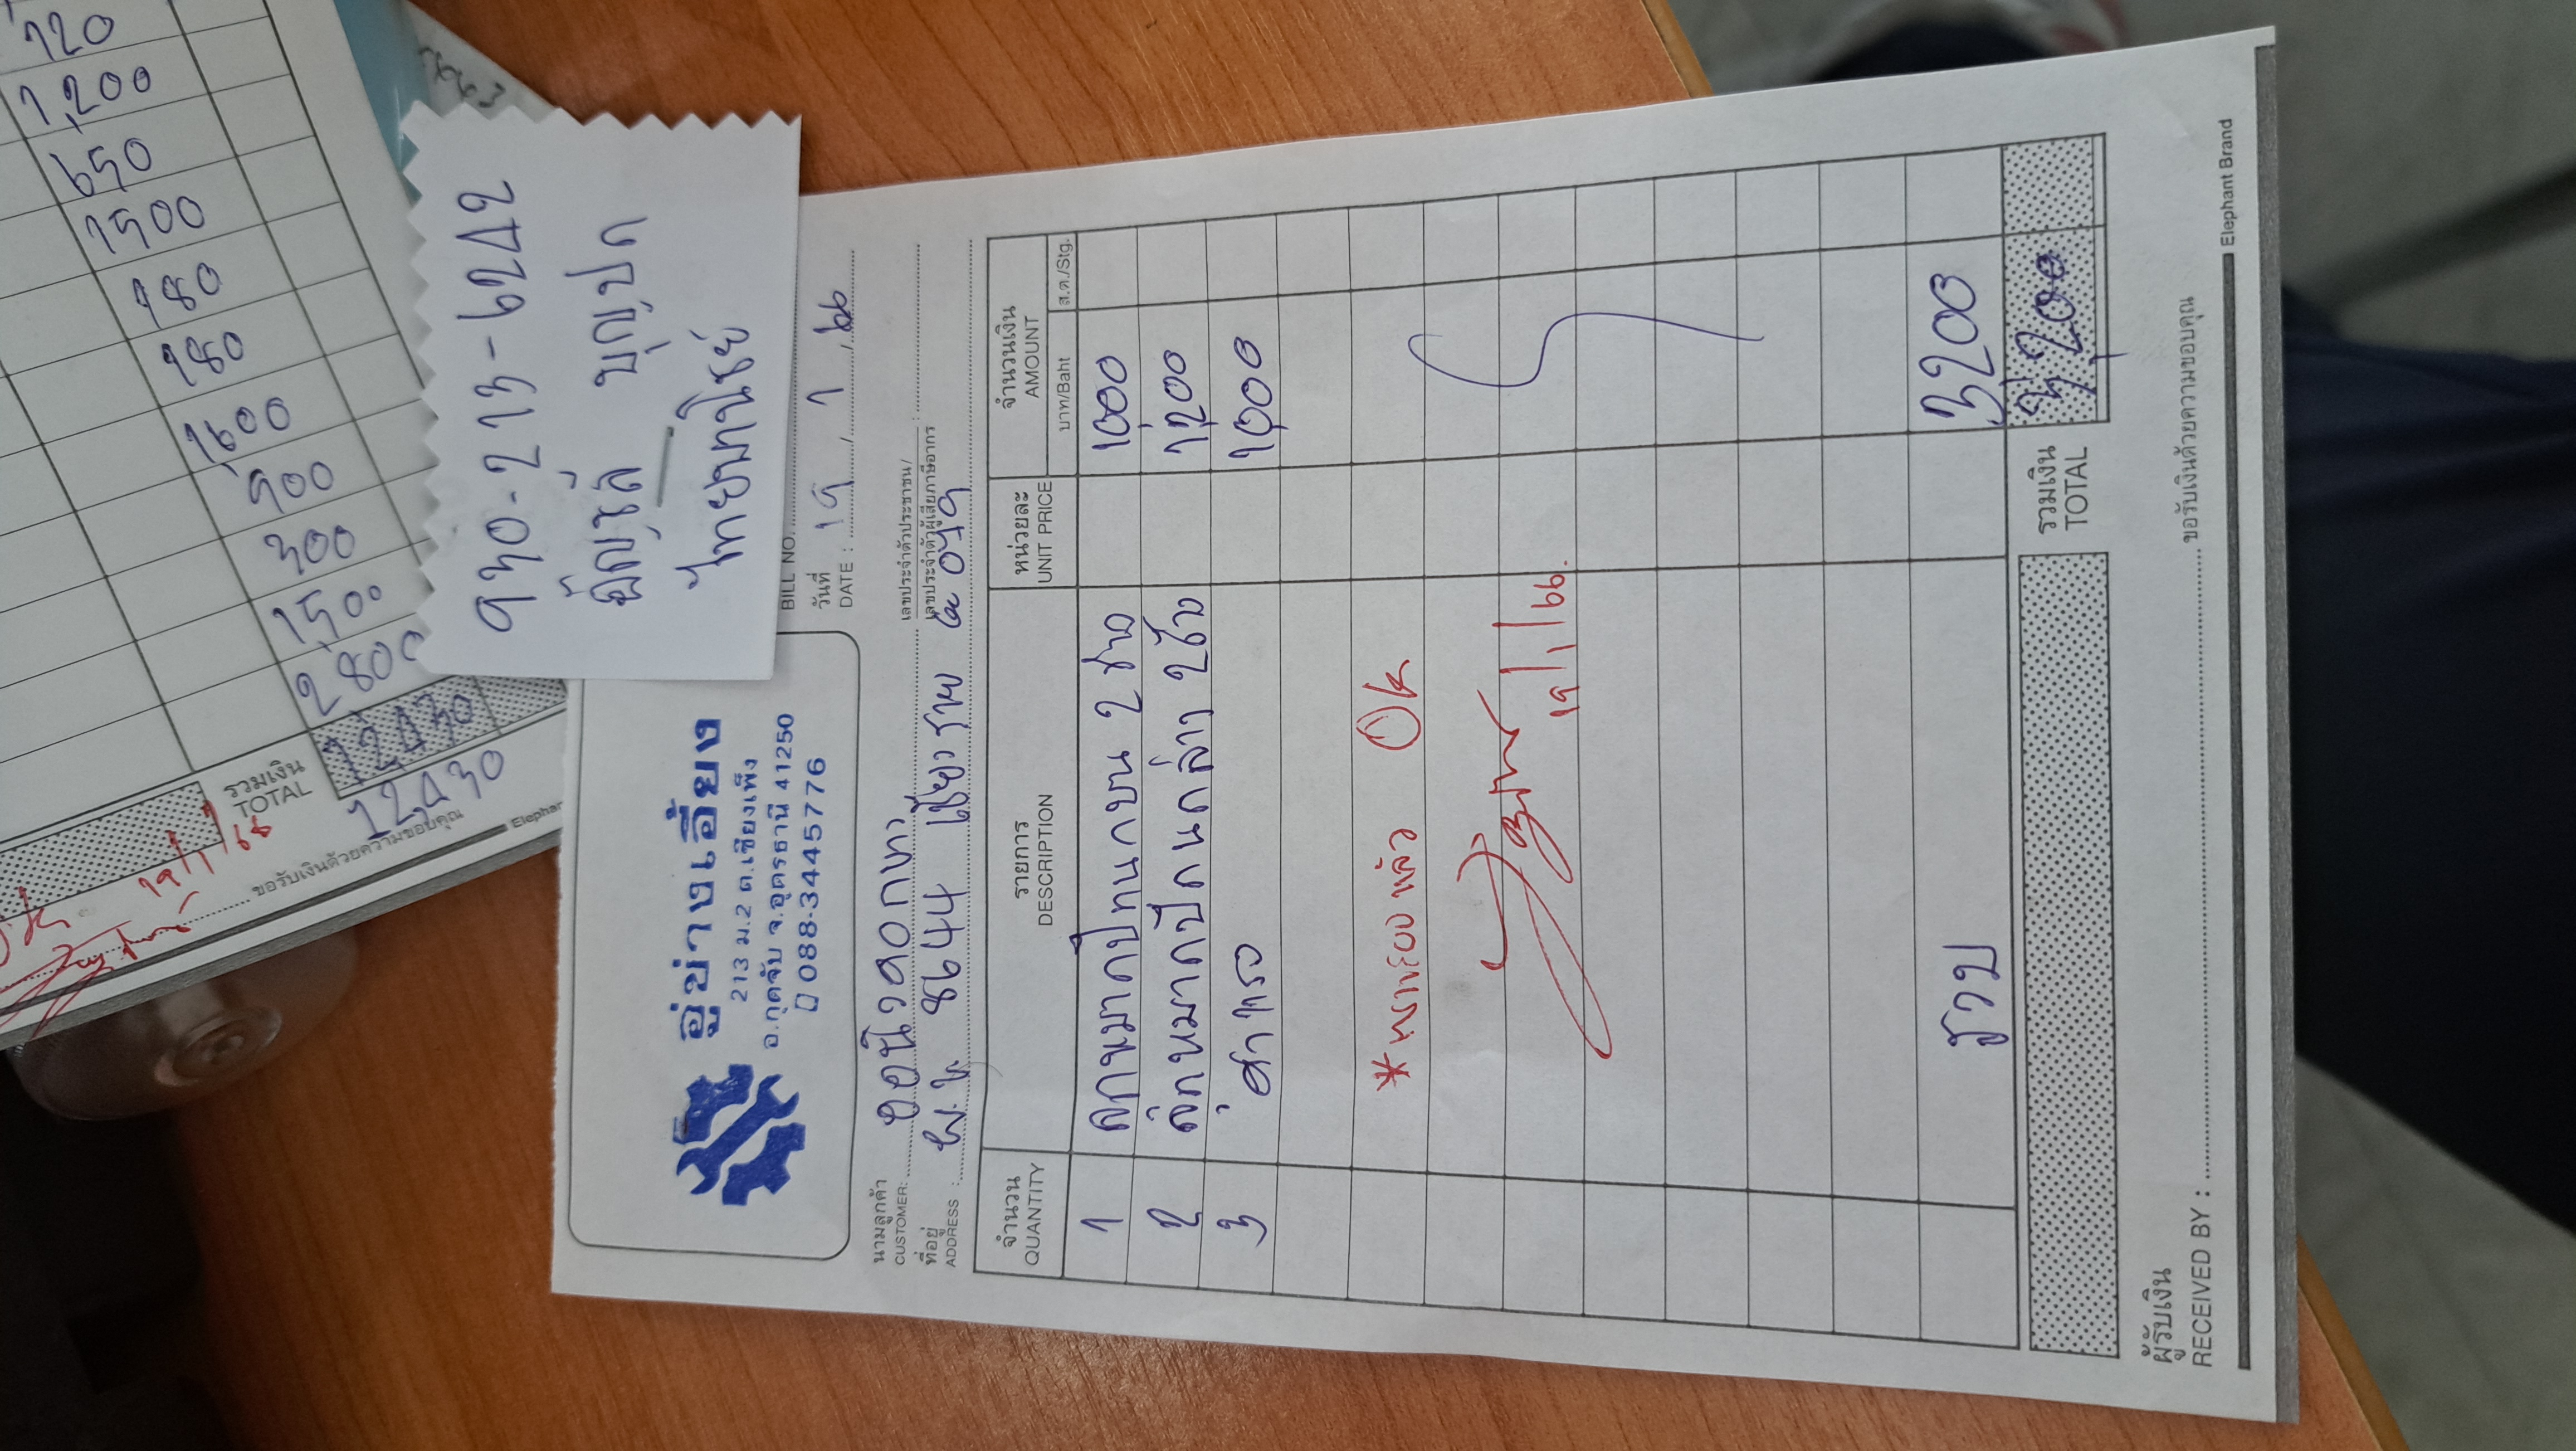 720
1,200
650
1500
180
180
1600
900
300
1,500
2 800
รวมเงิน
TOTAL
12,430
12,430
19/1/66
ขอรับเงินด้วยความขอบคุณ
Elephan
930-213-6242
บัญชี
ไทยพาณิชย์
อู่ช่างเอี้ยง
213 ม.2 ต.เชียงเพ็ง
อ.กุดจับ จ.อุดรธานี 41250
088-3445776
BILL NO.
วันที่
DATE : 19 / 1 / 66
นามลูกค้า
CUSTOMER:
เลขประจำตัวประชาชน/
เลขประจำตัวผู้เสียภาษีอากร
ที่อยู่
ADDRESS : 8644
จำนวน
QUANTITY
รายการ
DESCRIPTION
หน่วยละ
UNIT PRICE
จำนวนเงิน
AMOUNT
บาท/Baht
ส.ต./Stg.
1 ลูกหมากปีกนกบน 2 ข้าง 1,000
2 ลูกหมากปีกนกล่าง 2 ข้าง 1,200
3 ค่าแรง 1,000
Ok
19/1/66.
รวม 3200
รวมเงิน
TOTAL
3,200
ผู้รับเงิน
RECEIVED BY :
ขอรับเงินด้วยความขอบคุณ
Elephant Brand